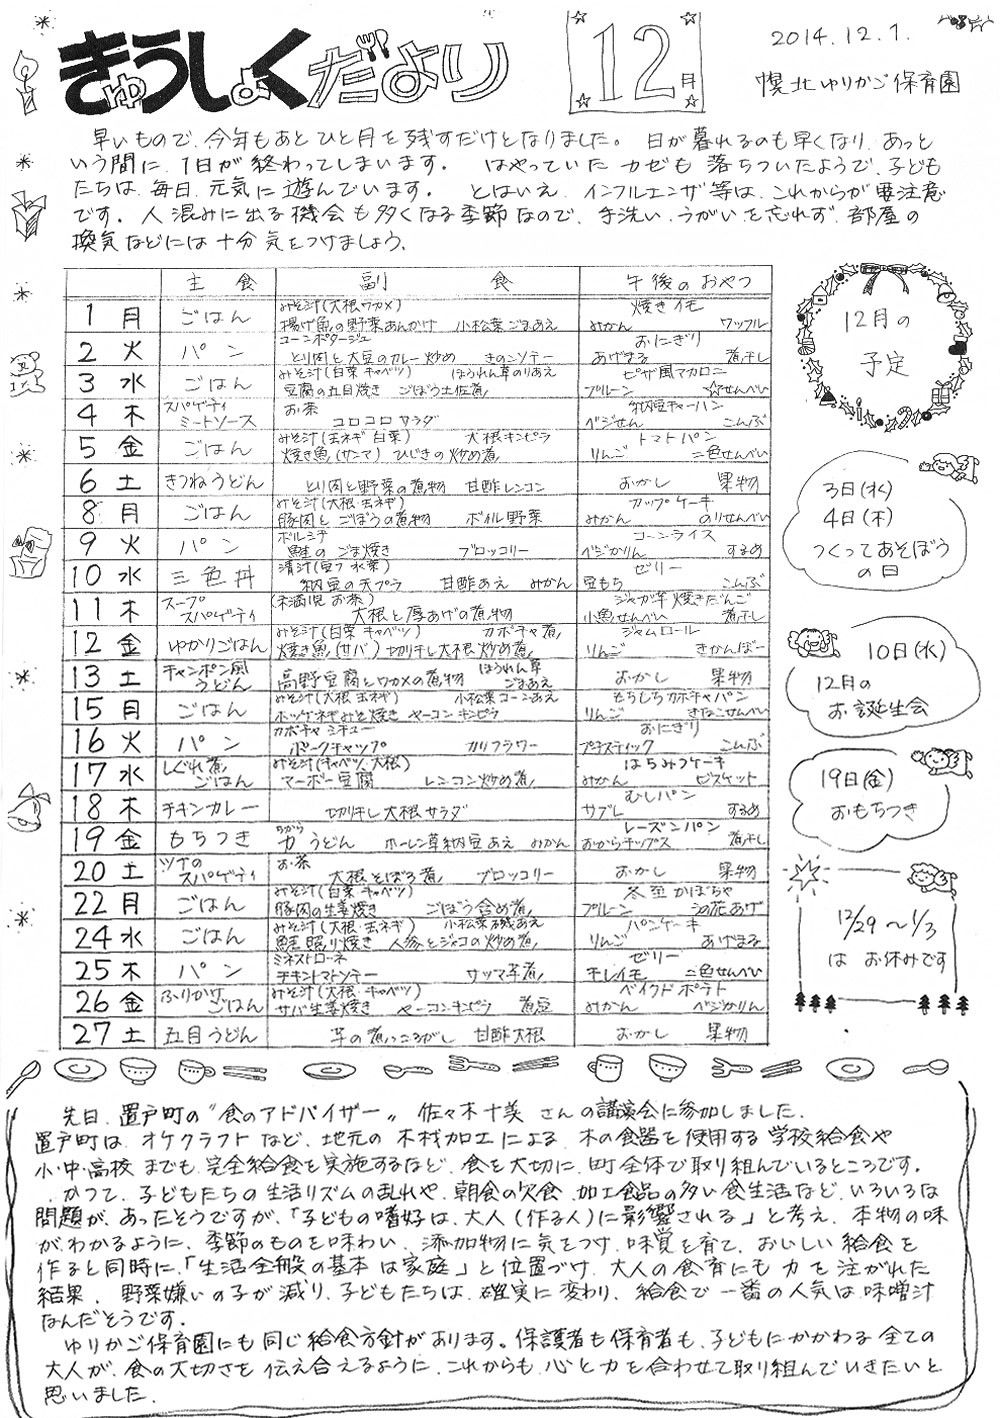 きゅうしょくだより
12月
2014.12.1.
幌北ゆりかご保育園
早いもので、今年もあとひと月を残すだけとなりました。 日が暮れるのも早くなり、あっと
いう間に、1日が終わってしまいます。 はやっていたカゼも落ちついたようで、子ども
たちは、毎日、元気に遊んでいます。 とはいえ、インフルエンザ等は、これからが要注意
です。人混みに出る機会も多くなる季節なので、手洗い、うがいを忘れず、部屋の
換気などには十分気をつけましょう。
主食 副食 午後のおやつ
1 月 ごはん みそ汁(大根 ワカメ) 揚げ魚の野菜あんかけ 小松菜ごまあえ 焼きイモ みかん ワッフル
2 火 パン コーンポタージュ とり肉と大豆のカレー炒め きのこソテー おにぎり あげまる 煮干し
3 水 ごはん みそ汁(白菜 キャベツ) ほうれん草のりあえ 豆腐の五目焼き ごぼう土佐煮 ピザ風マカロニ プルーン ☆せんべい
4 木 スパゲティミートソース お茶 コロコロサラダ 納豆チャーハン ベジせん こんぶ
5 金 ごはん みそ汁(玉ネギ 白菜) 大根キンピラ 焼き魚(サンマ) ひじきの炒め煮 トマトパン りんご 二色せんべい
6 土 きつねうどん とり肉と野菜の煮物 甘酢レンコン おかし 果物
8 月 ごはん みそ汁(大根・玉ネギ) 豚肉とごぼうの煮物 ボイル野菜 カップケーキ みかん のりせんべい
9 火 パン ボルシチ 鮭のごま焼き ブロッコリー コーンライス ベジかりん するめ
10 水 三色丼 清汁(豆フ 水菜) 納豆の天プラ 甘酢あえ みかん ゼリー 豆もち こんぶ
11 木 スープスパゲティ (未満児 お茶) 大根と厚あげの煮物 ジャガ芋焼きだんご 小魚せんべい 煮干し
12 金 ゆかりごはん みそ汁(白菜 キャベツ) カボチャ煮 焼き魚(サバ) 切り干し大根炒め煮 ジャムロール りんご きかんぼー
13 土 チャンポン風うどん 高野豆腐とワカメの煮物 ほうれん草ごまあえ おかし 果物
15 月 ごはん みそ汁(大根 玉ネギ) 小松菜コーンあえ ホッケネギみそ焼き ヤーコンキンピラ もちもちカボチャパン りんご きなこせんべい
16 火 パン カボチャシチュー ポークチャップ カリフラワー おにぎり プチスティック こんぶ
17 水 しぐれ煮ごはん みそ汁(キャベツ・大根) マーボー豆腐 レンコン炒め煮 はちみつケーキ みかん ビスケット
18 木 チキンカレー 切り干し大根サラダ むしパン サブレ するめ
19 金 もちつき 力うどん ホーレン草納豆あえ みかん レーズンパン おからチップス 煮干し
20 土 ツナのスパゲティ お茶 大根そぼろ煮 ブロッコリー おかし 果物
22 月 ごはん みそ汁(白菜・キャベツ) 豚肉の生姜焼き ごぼう含め煮 冬至かぼちゃ プルーン の花あげ
24 水 ごはん みそ汁(大根・玉ネギ) 小松菜磯あえ 鮭照り焼き 人参とジャコの炒め煮 パンケーキ りんご あげまる
25 木 パン ミネストローネ チキントマトソテー サツマ芋煮 ゼリー 干しイモ 二色せんべい
26 金 ふりかけごはん みそ汁(大根・キャベツ) サバ生姜焼き ヤーコンキンピラ 煮豆 ベイクドポテト みかん ベジかりん
27 土 五目うどん 芋の煮っころがし 甘酢大根 おかし 果物
12月の
予定
3日(水)
4日(木)
つくってあそぼう
の日
10日(水)
12月の
お誕生会
19日(金)
おもちつき
12/29〜1/3
は お休みです
先日、置戸町の〝食のアドバイザー〟佐々木十美さんの講演会に参加しました。
置戸町は、オケクラフトなど、地元の木材加工による、木の食器を使用する学校給食や
小・中・高校までも、完全給食を実施するなど、食を大切に、町全体で取り組んでいるところです。
かつて、子どもたちの生活リズムの乱れや、朝食の欠食、加工食品の多い食生活など、いろいろな
問題が、あったそうですが、「子どもの嗜好は、大人(作る人)に影響される」と考え、本物の味
が、わかるように、季節のものを味わい、添加物に気をつけ、味覚を育て、おいしい給食を
作ると同時に、「生活全般の基本は家庭」と位置づけ、大人の食育にも力を注がれた
結果、野菜嫌いの子が減り、子どもたちは、確実に変わり、給食で一番の人気は、味噌汁
なんだそうです。
ゆりかご保育園にも同じ給食方針があります。保護者も保育者も、子どもにかかわる全ての
大人が、食の大切さを伝え合えるように、これからも、心と力を合わせて取り組んでいきたいと
思いました。